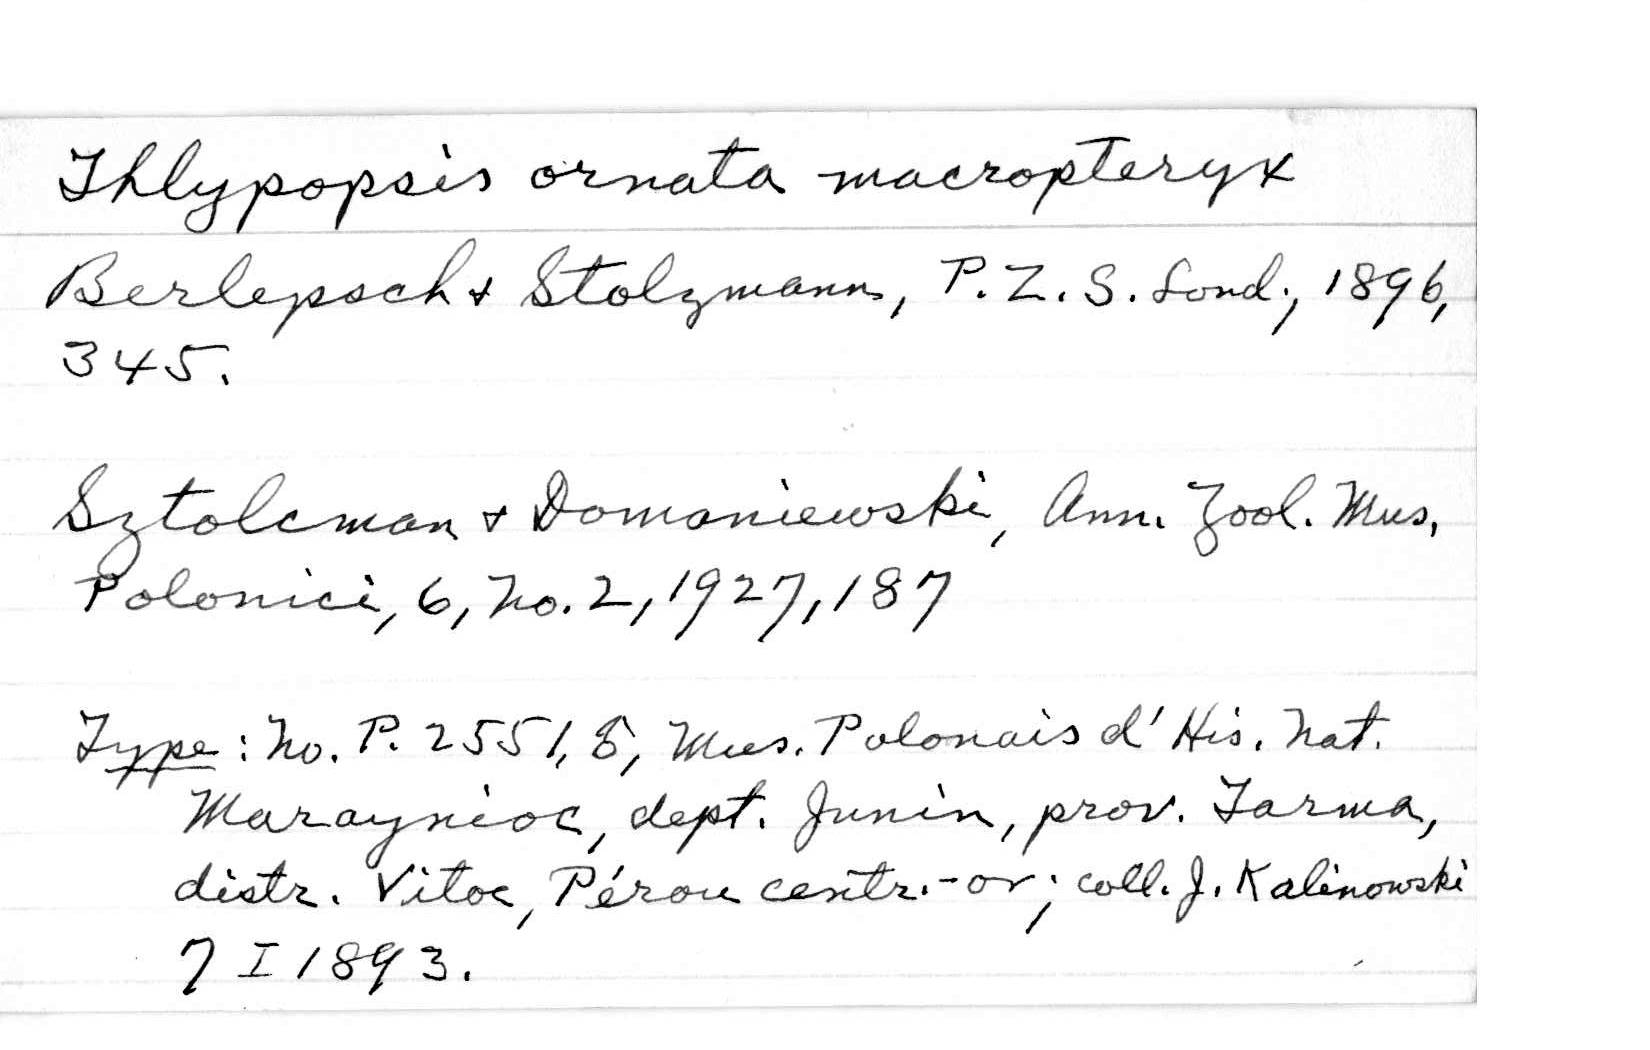 Thlypopsis ornata macropteryx
Berlepsch & Stolzmann, P.Z.S. Lond., 1896,
345.
Sztolcman & Domaniewski, Ann. Zool. Mus.
Polonici, 6, No. 2, 1927, 187
Type: No. P. 2551, ♂, Mus. Polonais d' His. Nat.
Maraynioc, dept. Junin, prov. Tarma,
distr. Vitoc, Pérou centr.-or; coll. J. Kalinowski
7 I 1893.